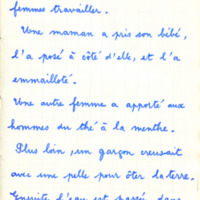 femmes travailler.
Une maman a pris son bébé,
l'a posé à côté d'elle, et l'a
emmailloté.
Une autre femme a apporté aux
hommes du thé à la menthe.
Plus loin, un garçon creusait
avec une pelle pour ôter la terre.
Ensuite l'eau est passée dans